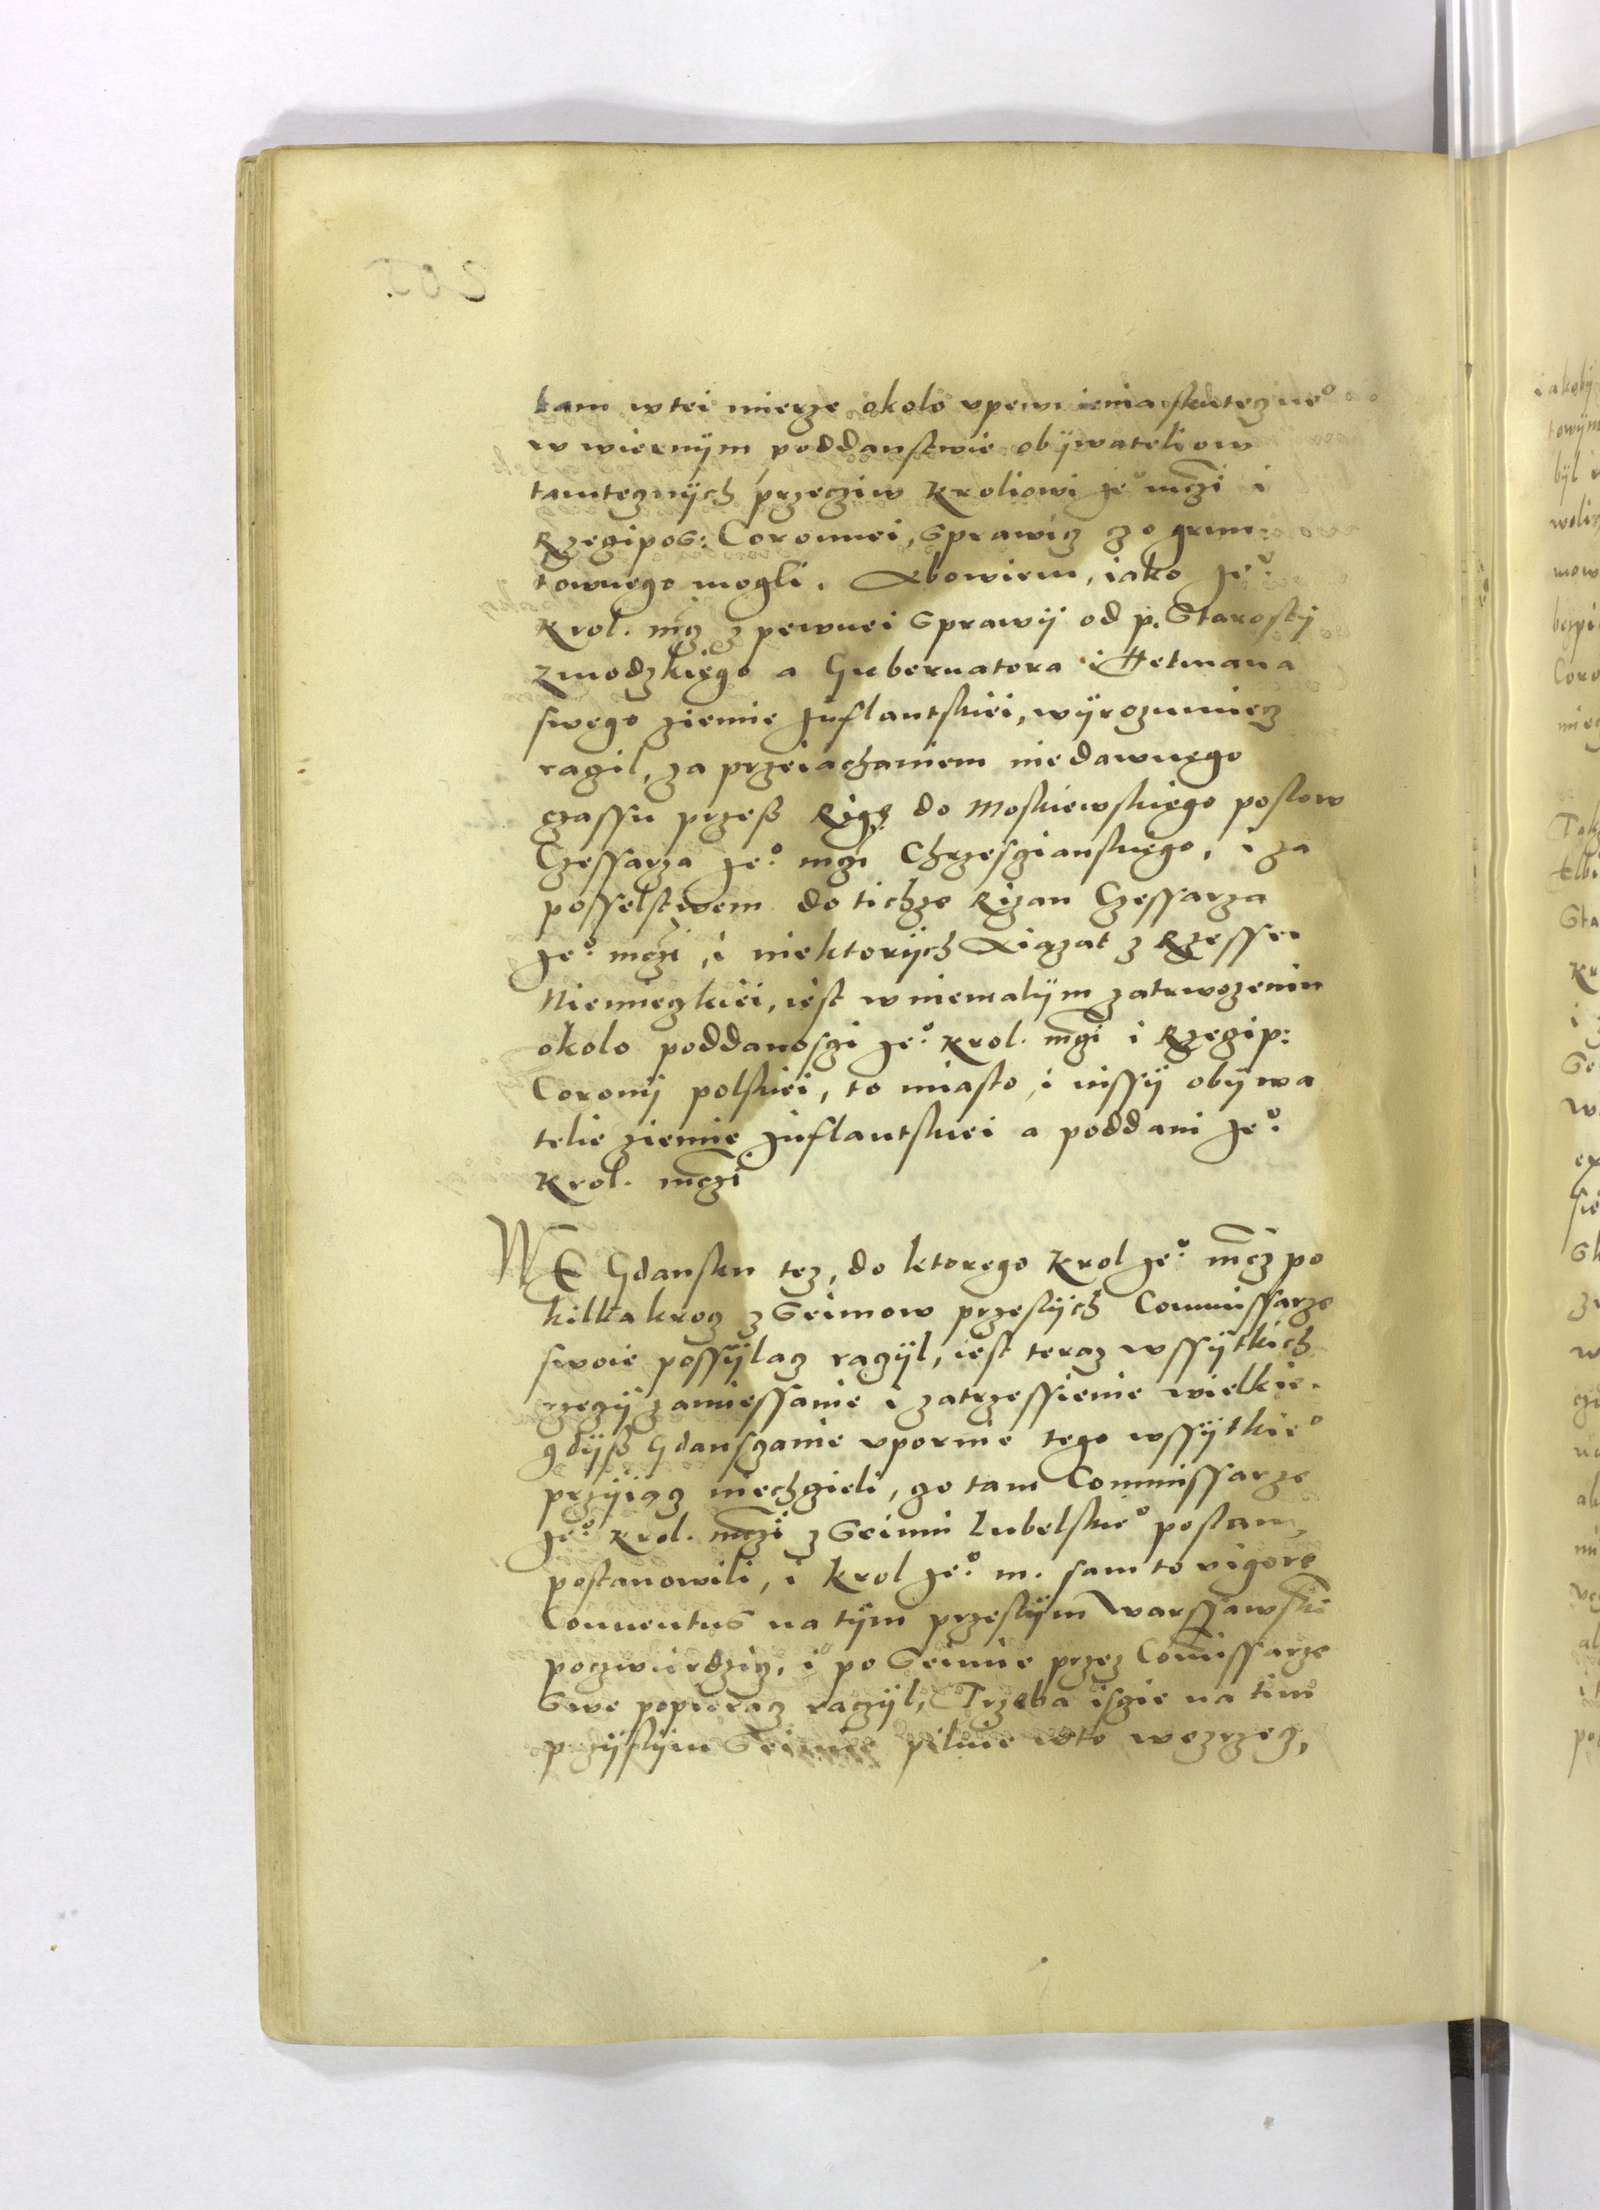 tam wtei mierze okolo vpewnienia skutecznego
w wiernÿm poddanstwie obÿwateliow
tamtecznÿch przecziw Kroliowi Jeo mczi i
Rzeczipos: Coronnei, sprawicz czo grun:
townego mogli. Abowiem, iako Jeo
Krol. mcz z pewnei sprawÿ od p. Starostÿ
zmodzkiego a Gubernatora i Hetmana
swego ziemie Inflantskiei, wÿrozumiecz
raczil, za przeiachaniem niedawnego
czassu przesz Rigę do Moskiewskiego poslow
Czessarza Jeo mczi Chrzescianskiego, i za
posselstwem do tichze Rizan Czessarza
Jeo mczi, i niektorÿch Xiązat z Rzessei
Niemieczkiei, iest w niemalÿm zatrwozeniu
okolo poddanosczi Jeo Krol. mczi i Rzeczip:
Coronÿ polskiei, to miasto, i inssÿ obÿwa
telie ziemie Inflantskiei a poddani Jeo
Krol. mczi
WE Gdansku tez, do ktorego Krol Jeo mcz po
kilkakrocz z Seimow przeslÿch Commissarze
swoie possÿlacz raczÿl, iest teraz wssÿtkich
rzeczÿ zamiessanie i zatrzessienie wielkie.
gdÿsz Gdansczanie vpornie tego wssÿtkieo
przÿiącz niechcieli, czo tam Commissarze
Jeo Krol. mczi z Seimu Lubelskieo
postanowili, i Krol Jeo m. sam to vigore
Conuentus na tÿm przeslÿm Warssawskim
poczwierdzicz, i po Seimie przez Comissarze
Swe popieracz raczÿl, Trzeba iscie na tim
przÿslÿm Seimie pilnie wto wezrzecz,